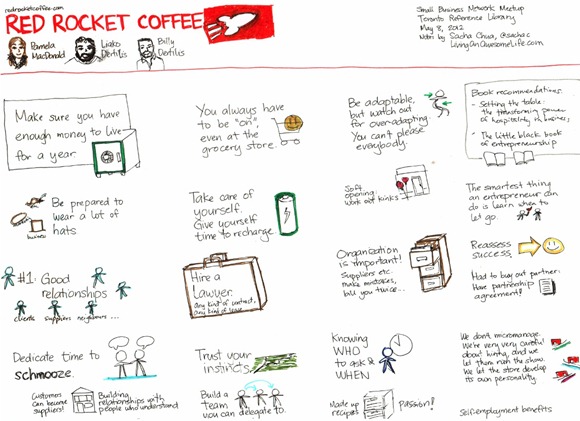 redrocketcoffee.com
RED ROCKET COFFEE
Pamela
MacDonald
Liako
Dertilis
Billy
Dertilis
Small Business Network Meetup
Toronto Reference Library
May 8, 2012
Notes by Sacha Chua, @sachac
LivingAnAwesomeLife.com
Make sure you have
enough money to live
for a year.
You always have
to be "on",
even at the
grocery store.
Be adaptable,
but watch out
for over-adapting.
You can't please
everybody.
Book recommendations:
- Setting the table:
the transforming power
of hospitality in business
- The little black book
of entrepreneurship
Be prepared to
wear a lot of
hats
business
Take care of
yourself.
Give yourself
time to recharge.
Soft
opening:
work out kinks
The smartest thing
an entrepreneur can
do is learn when to
let go.
#1: Good
relationships
clients suppliers neighbours...
Hire a
Lawyer.
any kind of contract,
any kind of lease
Organization
is important!
Suppliers etc.
make mistakes,
bill you twice...
Reassess
success.
Had to buy out partner.
Have partnership
agreement!
Dedicate time to
schmooze.
Customers
can become
suppliers!
Building
relationships with
people who understand
Trust your
instincts.
Build a
team
you can delegate to.
Knowing
WHO
to ask &
WHEN
Made up
recipes
Passion!
We don't micromanage.
We're very very careful
about hiring, and we
let them run the show.
We let the store develop
its own personality.
Self-employment benefits